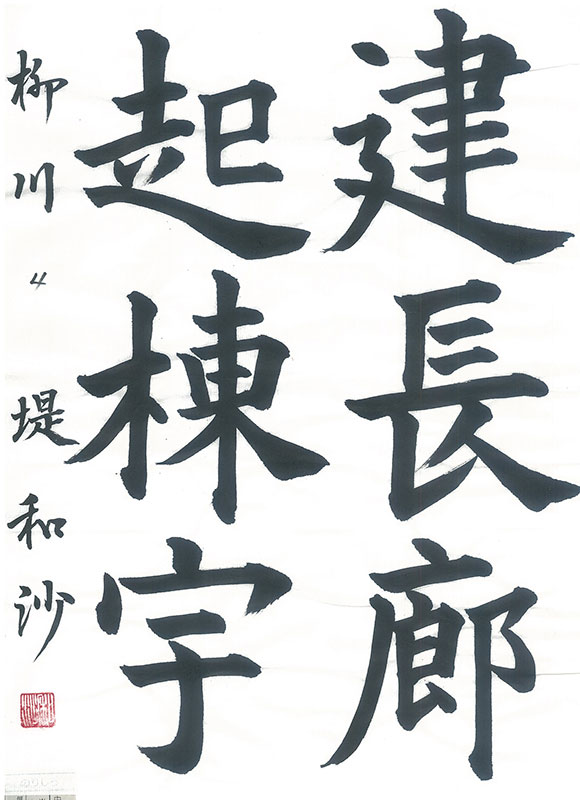 建長廊
起棟宇
柳川 4 堤和沙